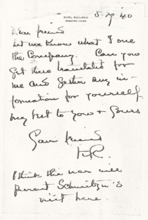 Dear friend
Let me know what I owe
the Company. Can you
get this translated for
me and gather any in-
formation for yourself
My best to you & yours
Your friend
I think the war will
prevent Schmitzer's
visit here.